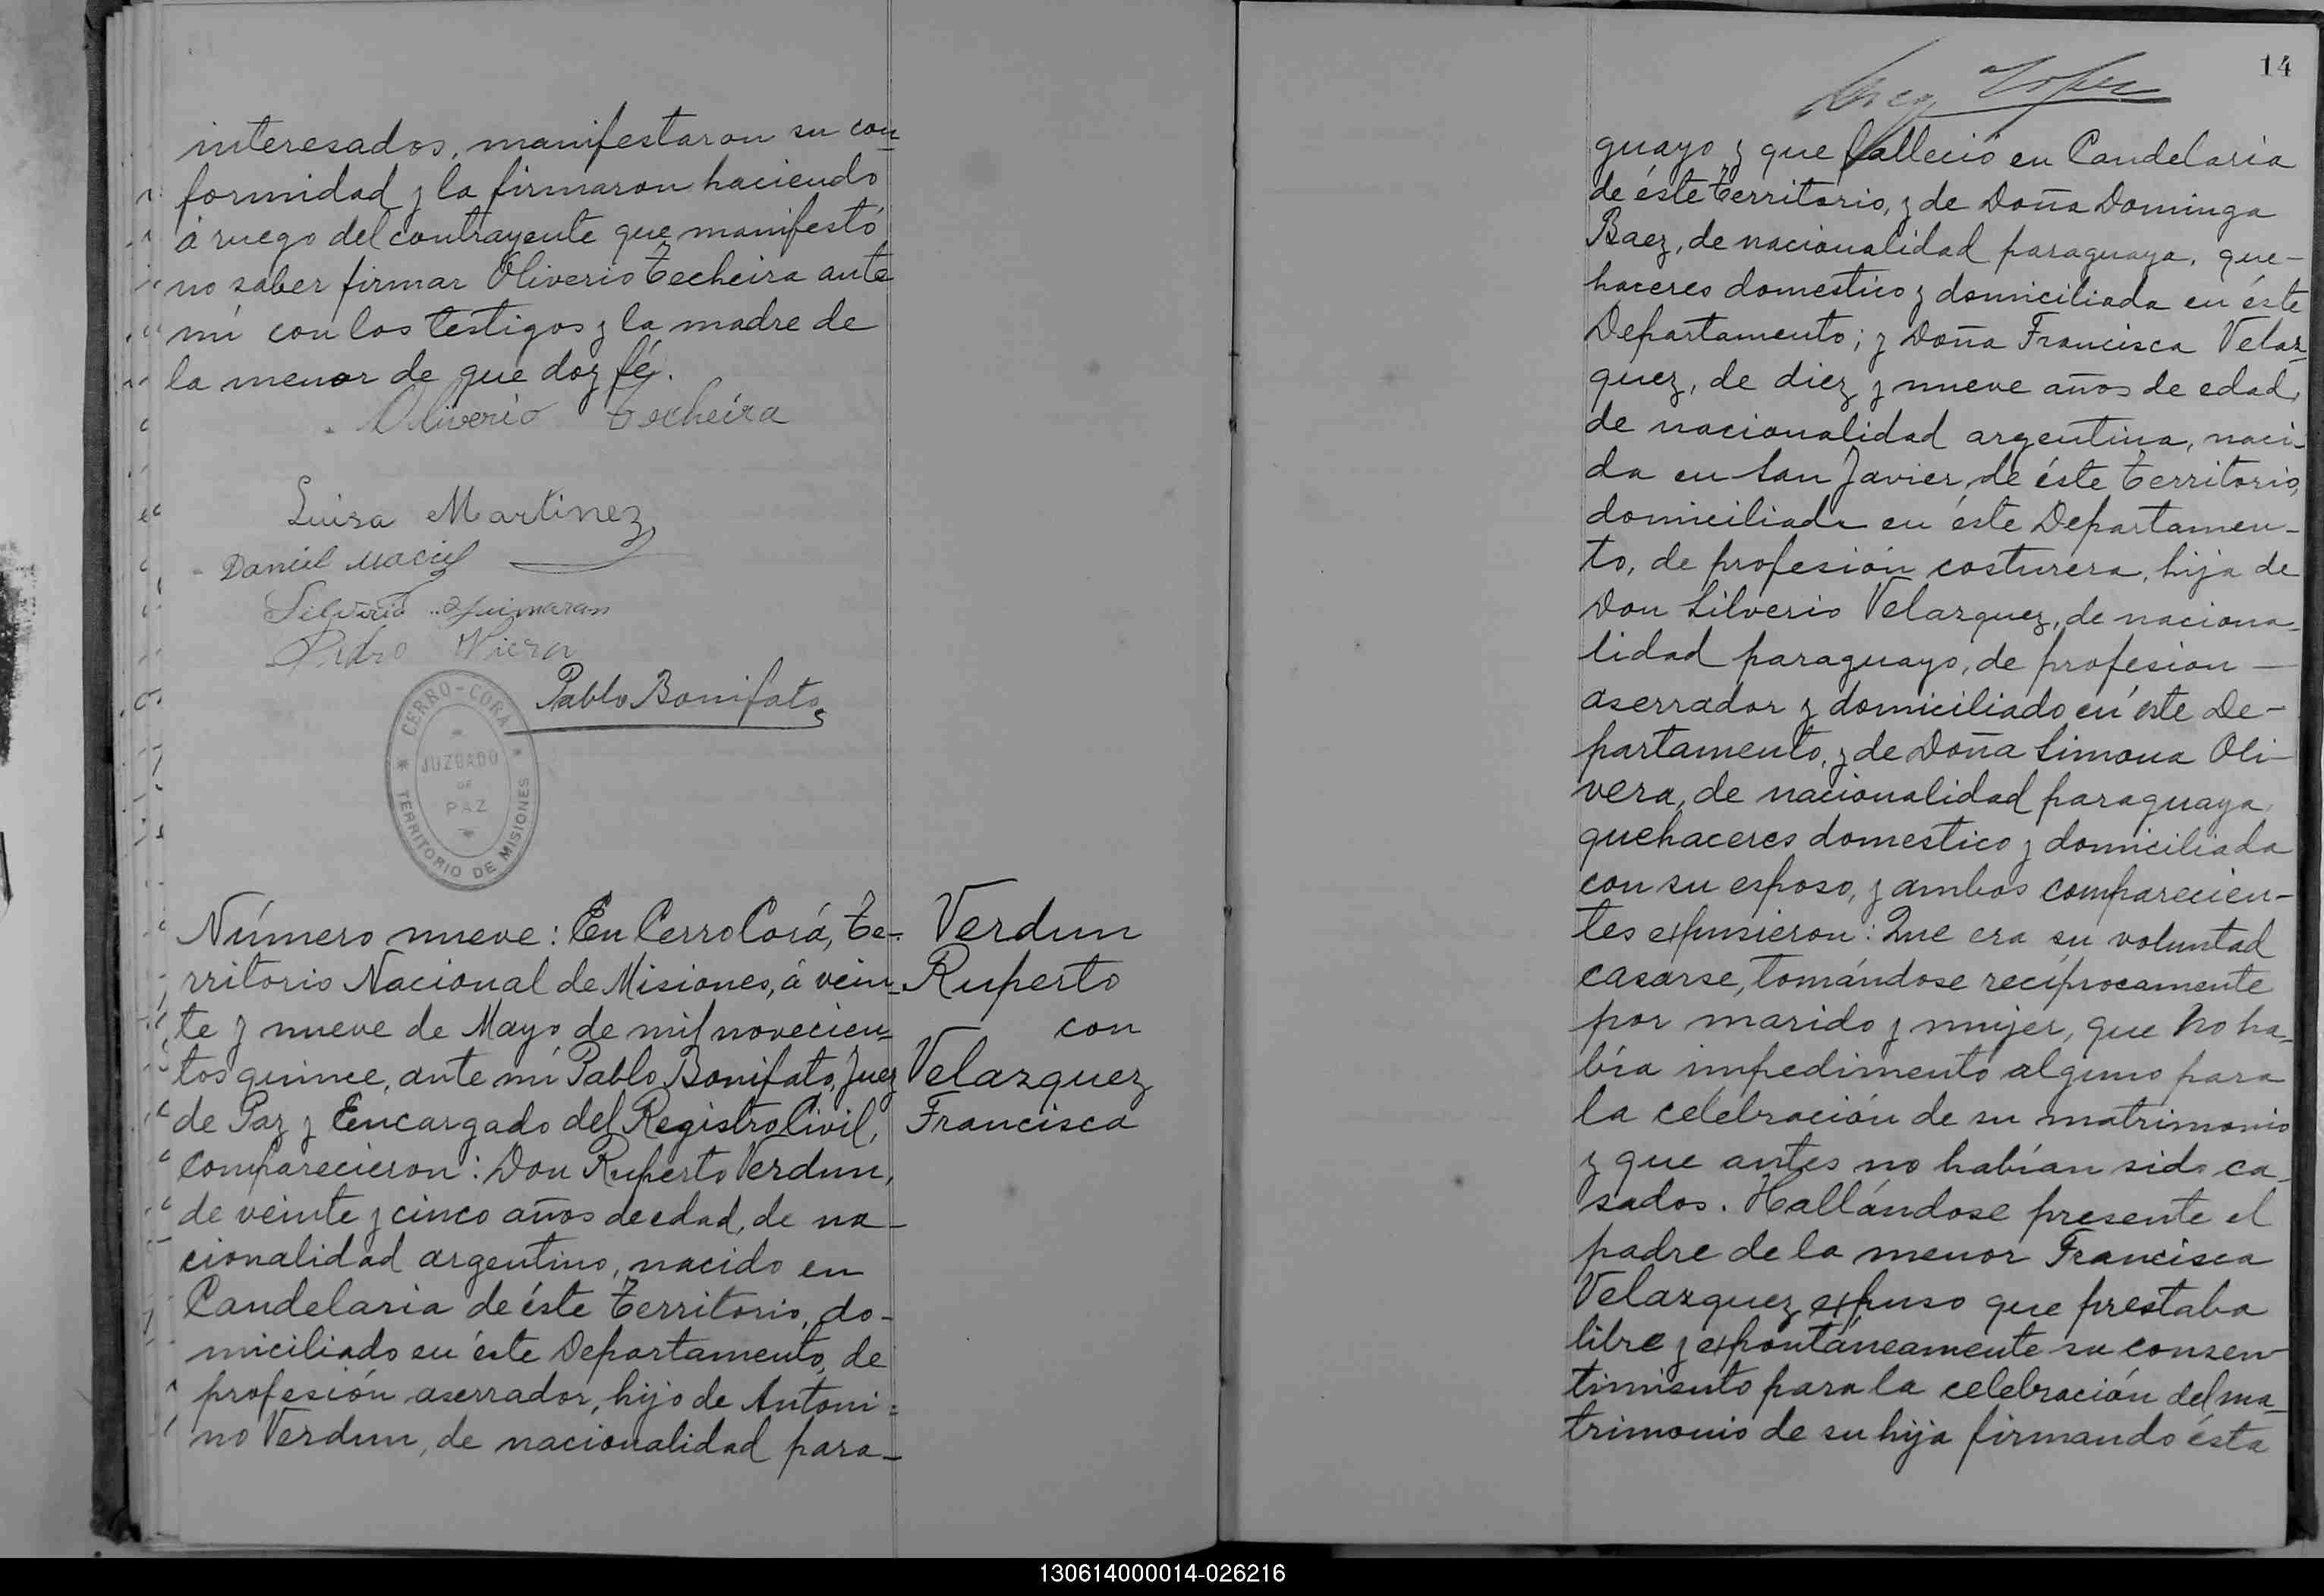 interesados, manifestaron su con
formidad y la firmaron haciendo
á ruego del contrayente que manifestó
no saber firmar Oliverio Techeira ante
mí con los testigos y la madre de
la menor de que doy fé.
Oliverio Techeira
Luisa Martinez
Daniel Maciel
Silverio Guimaran
Pedro Viera
Pablo Bonifato
CERRO-CORÁ
JUZGADO
DE
PAZ
TERRITORIO DE MISIONES
Número nueve: En Cerro Corá, Te-
rritorio Nacional de Misiones, á vein-
te y nueve de Mayo de mil novecien-
tos quince, ante mí Pablo Bonifato, Juez
de Paz y Encargado del Registro Civil,
comparecieron: Don Ruperto Verdun,
de veinte y cinco años de edad, de na-
cionalidad argentino, nacido en
Candelaria de éste Territorio, do-
miciliado en éste Departamento, de
profesión aserrador, hijo de Antoni-
no Verdun, de nacionalidad para-
Verdun
Ruperto
con
Velazquez
Francisca
14
guayo y que falleció en Candelaria
de éste Territorio, y de Doña Dominga
Baez, de nacionalidad paraguaya, que-
haceres domestico y domiciliada en éste
Departamento; y Doña Francisca Velaz
quez, de diez y nueve años de edad,
de nacionalidad argentina, naci-
da en San Javier, de éste Territorio,
domiciliada en éste Departamen-
to, de profesión costurera, hija de
Don Silverio Velazquez, de naciona-
lidad paraguayo, de profesion —
aserrador y domiciliado en éste De-
partamento, y de Doña Simona Oli-
vera, de nacionalidad paraguaya,
quehaceres domestico y domiciliada
con su esposo, y ambos comparecien-
tes expusieron: Que era su voluntad
casarse, tomándose recíprocamente
por marido y mujer, que no ha-
bía impedimento alguno para
la celebración de su matrimonio
y que antes no habían sido ca-
sados. Hallándose presente el
padre de la menor Francisca
Velazquez expuso que prestaba
libre y expontáneamente su consen-
timiento para la celebración del ma-
trimonio de su hija firmando ésta
130614000014-026216